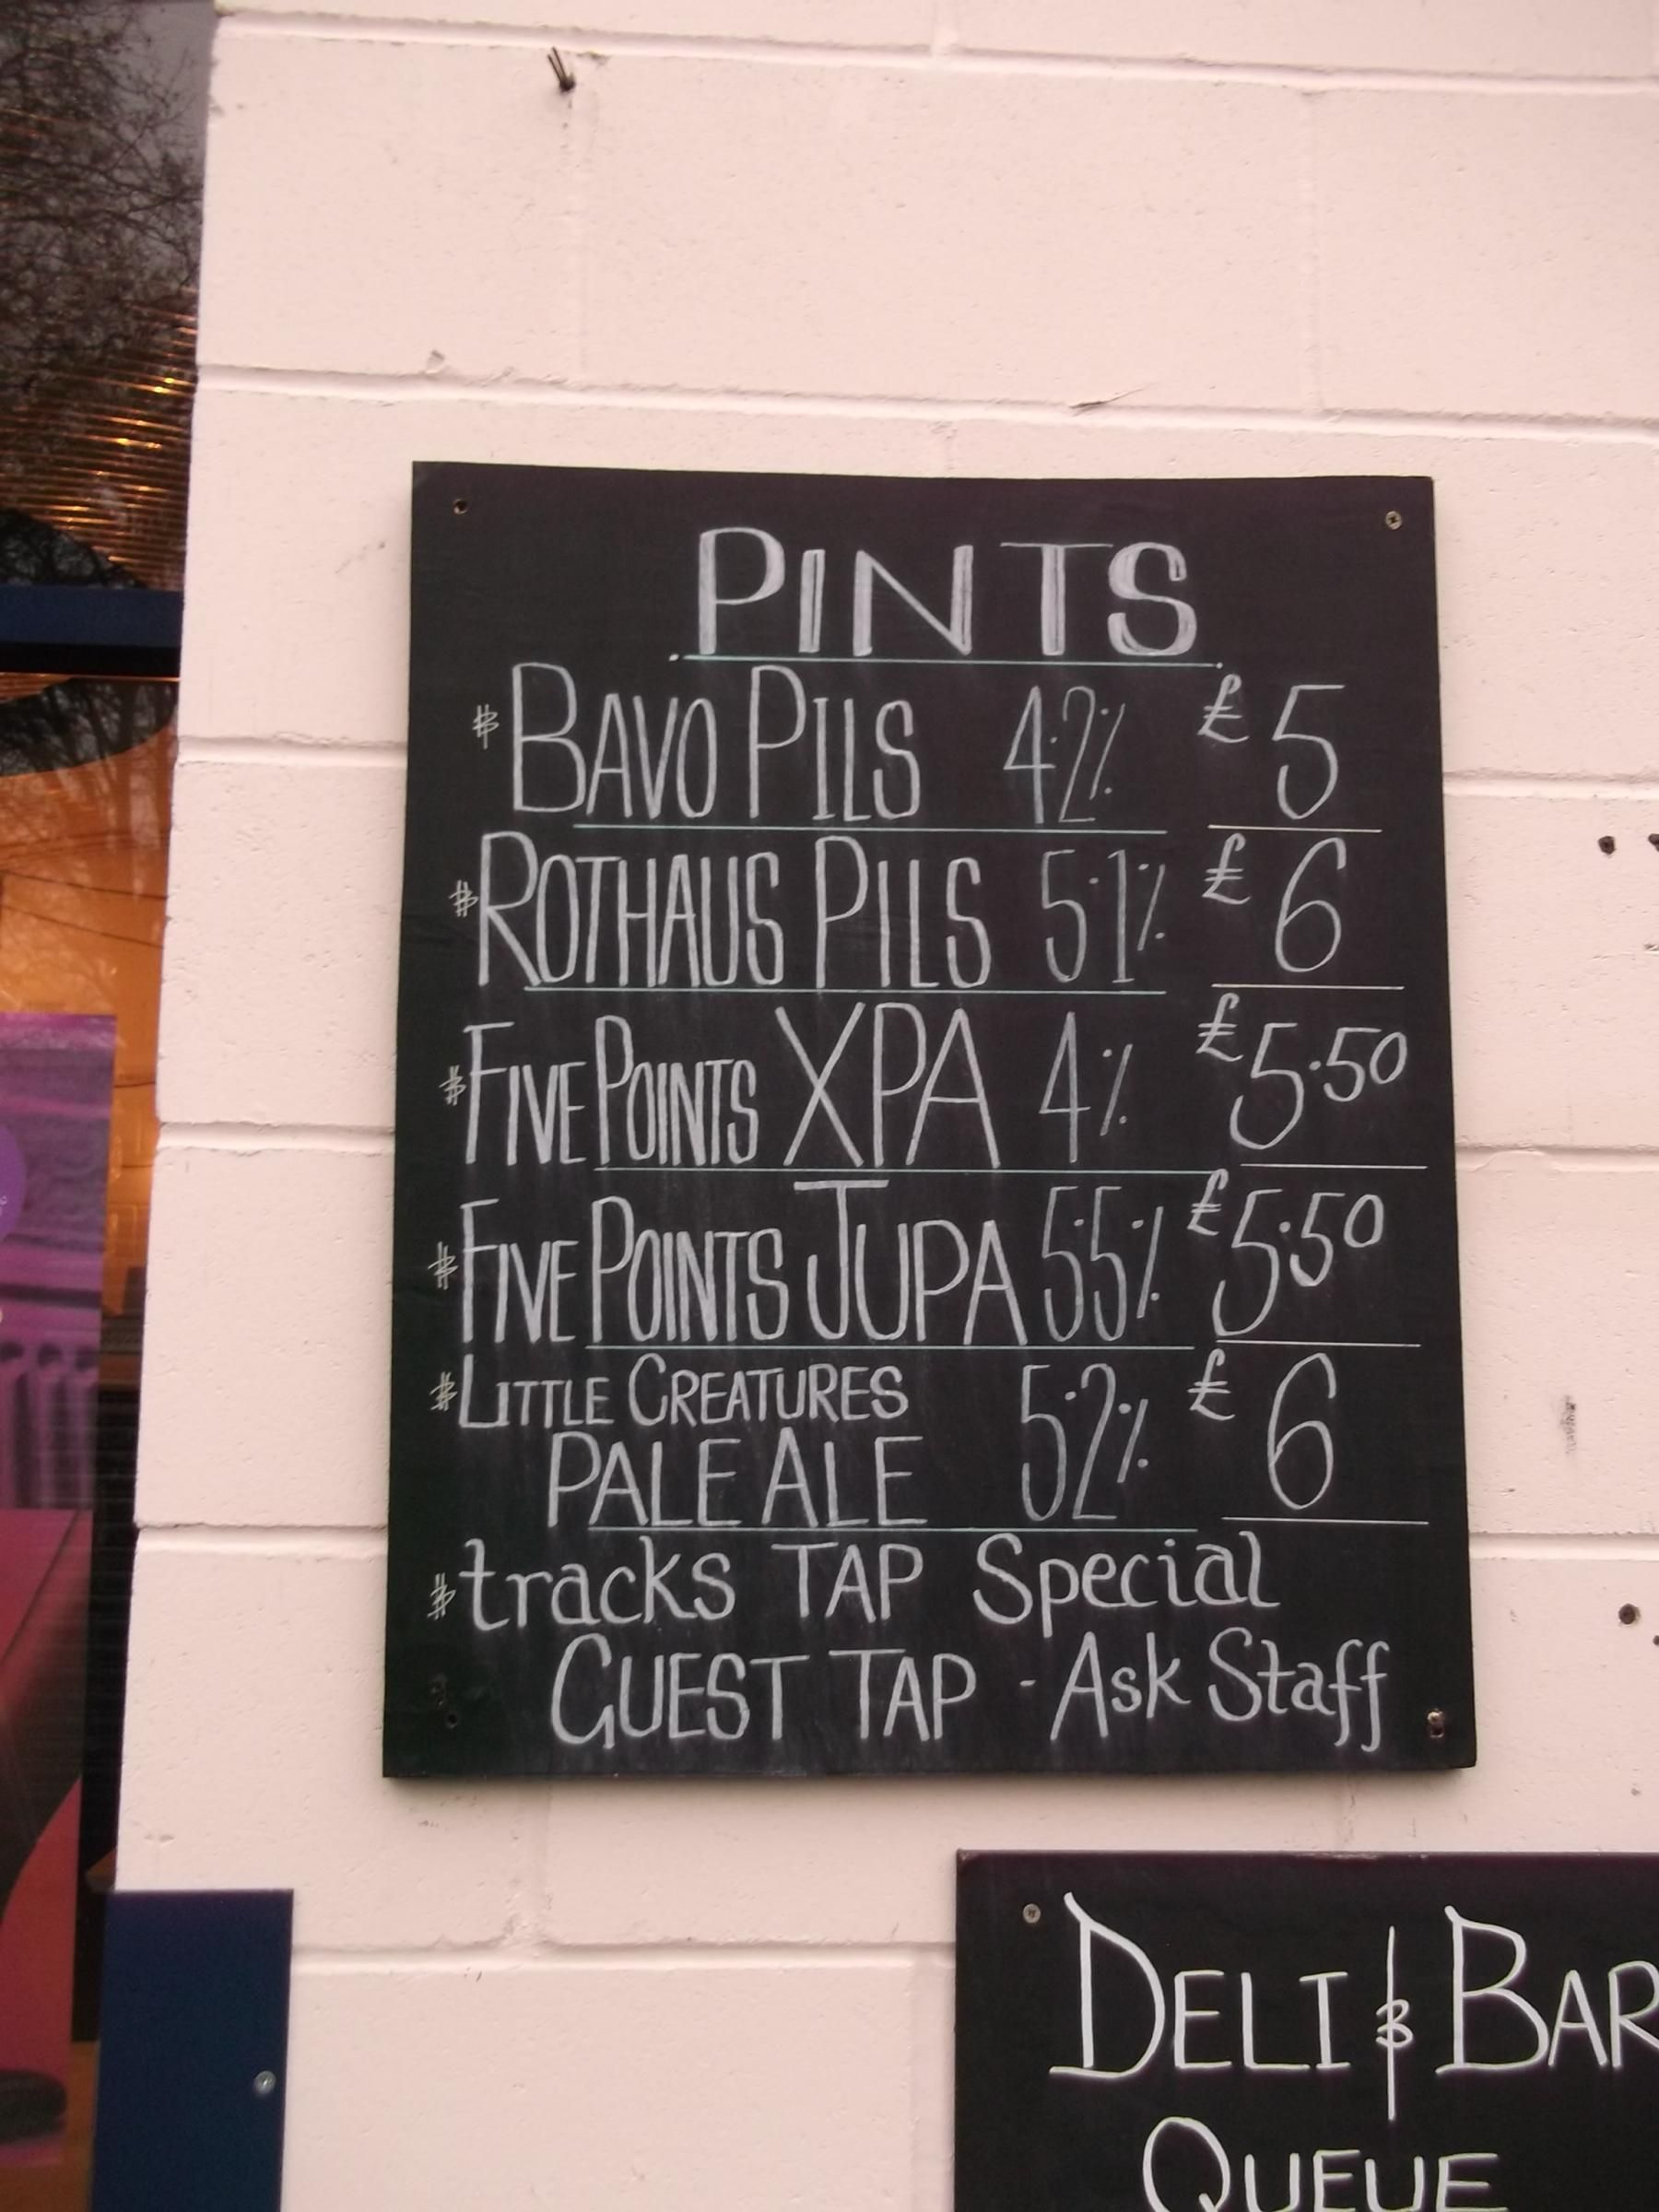 PINTS
# BAVO PILS 4.2% £5
# ROTHAUS PILS 5.1% £6
# FIVE POINTS XPA 4% £5.50
# FIVE POINTS JUPA 5.5% £5.50
# LITTLE CREATURES
PALE ALE 5.2% £6
# tracks TAP Special
GUEST TAP - Ask Staff
DELI & BAR
QUEUE